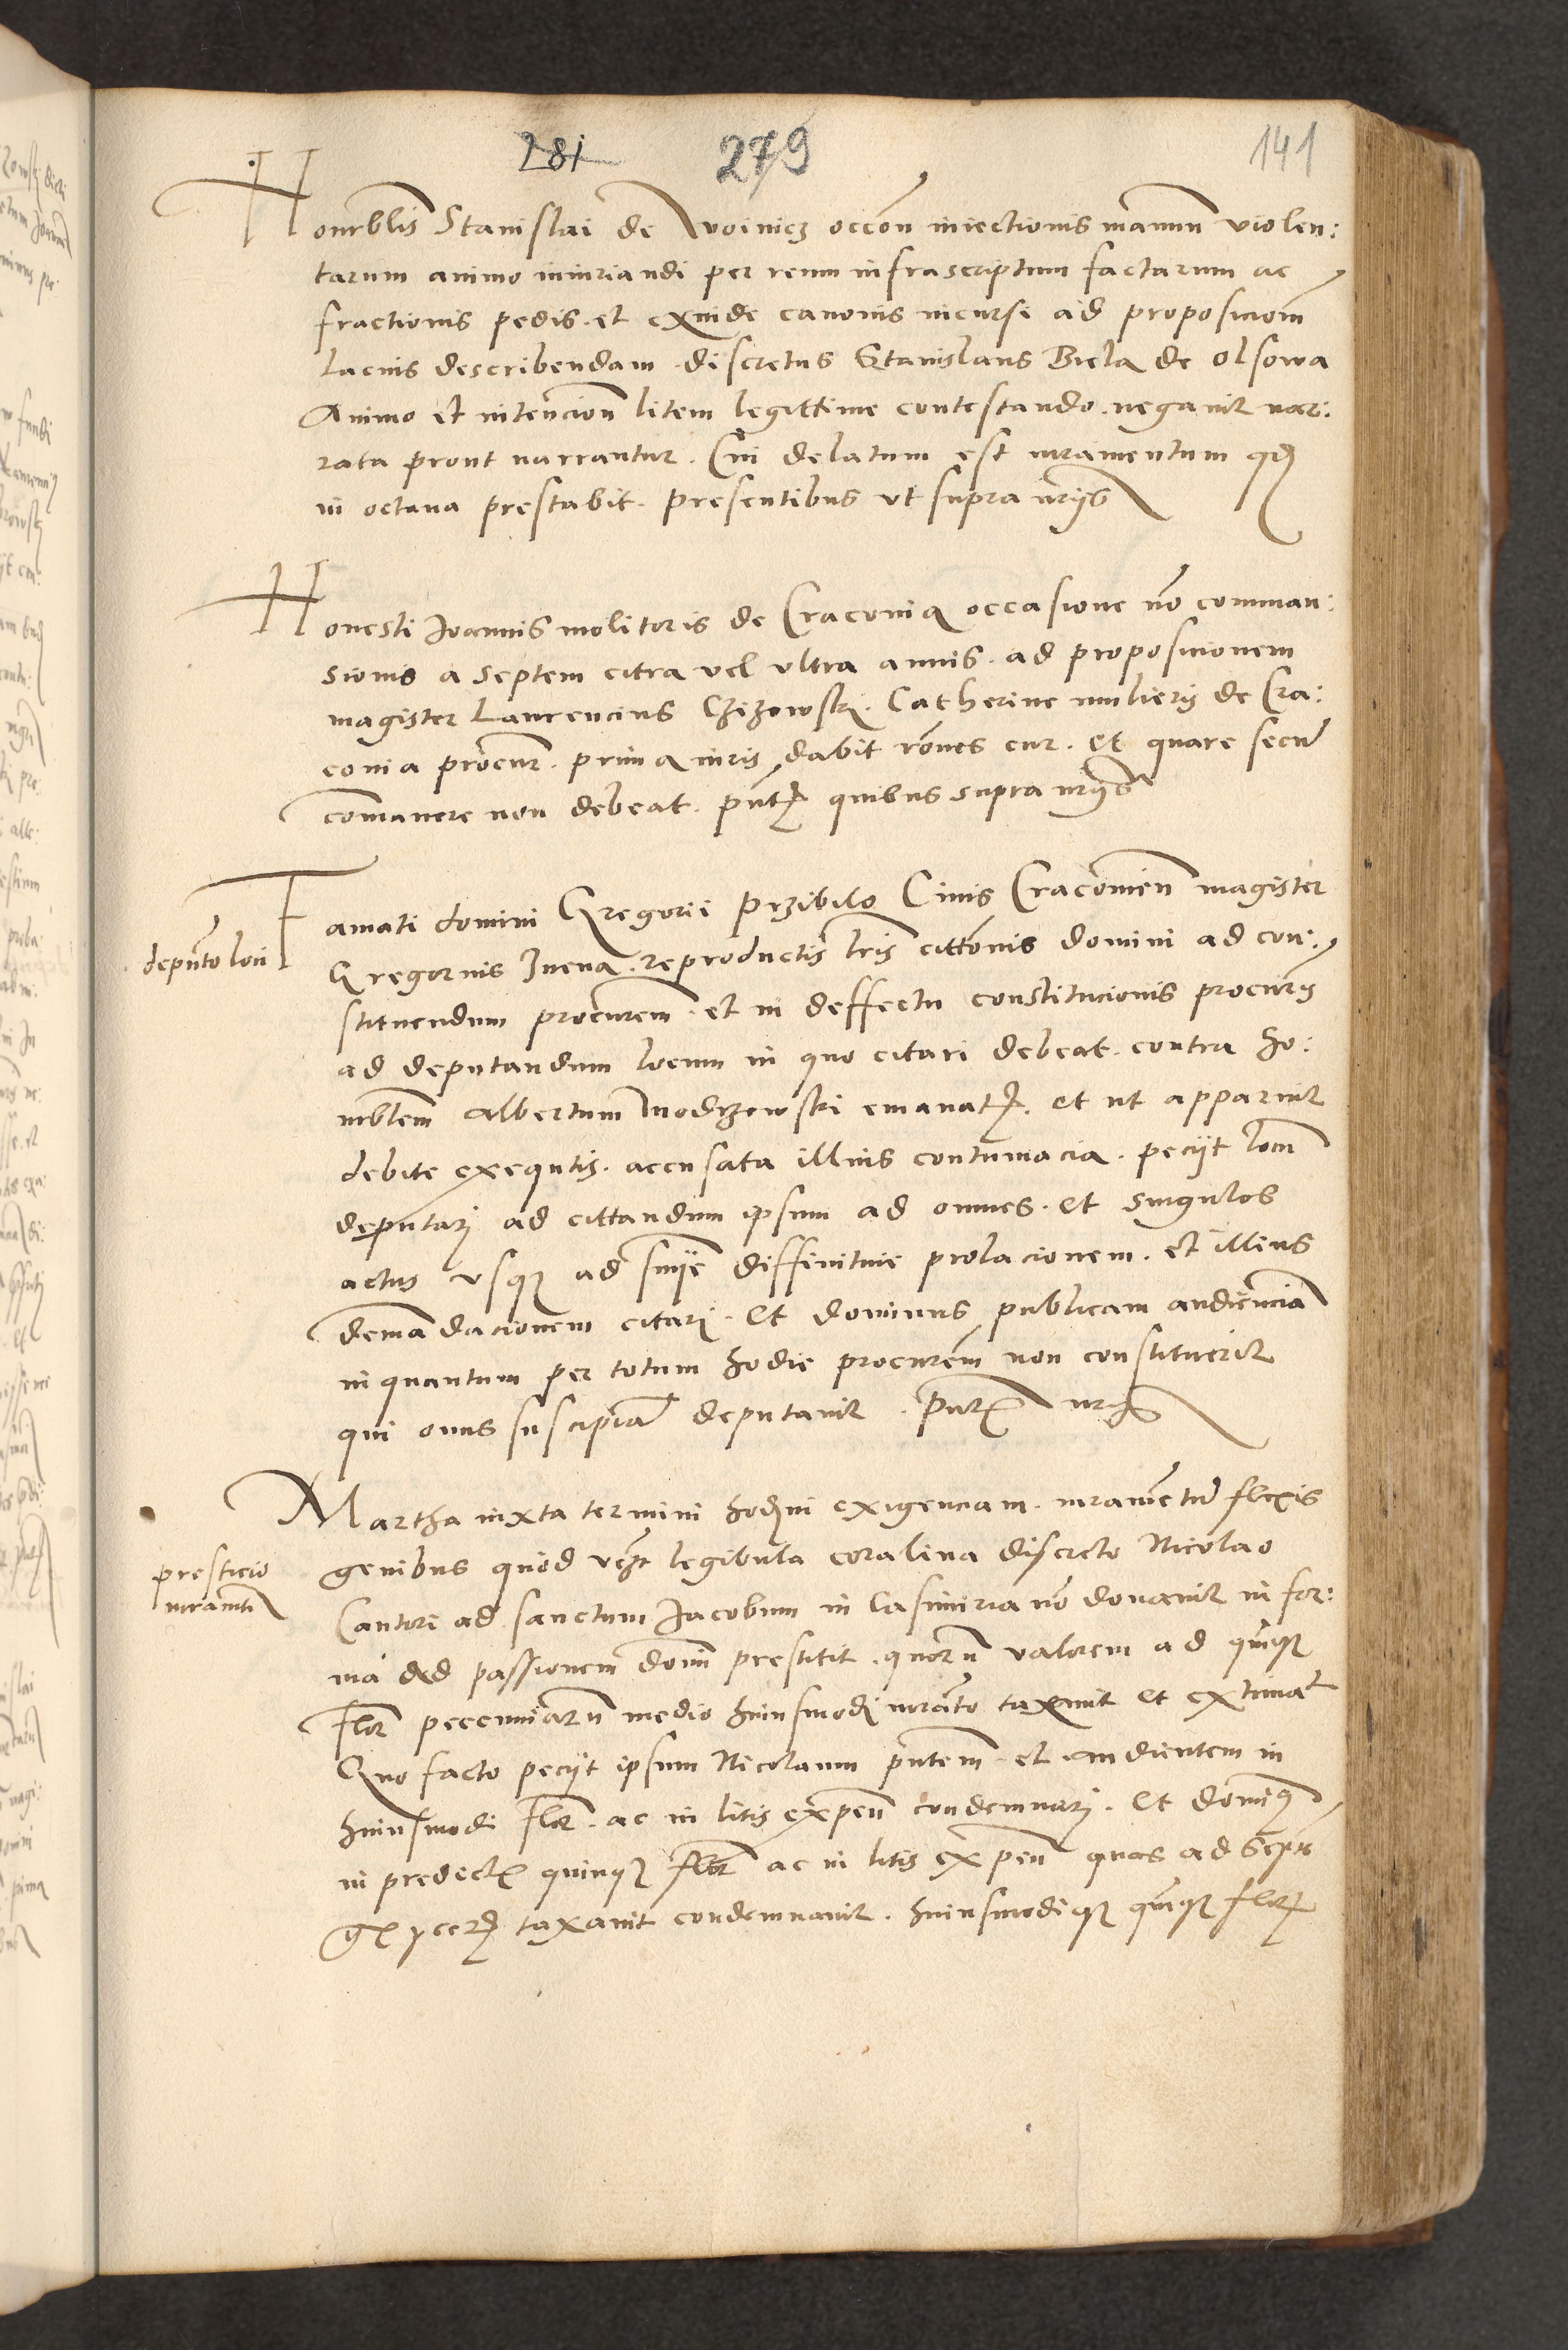 281 279 141
Honrblis Stanislai de Woinicz occōn iniectionis manuū violen:
tarum animo iniuriandi per reum infrascriptum factarum ac
fractionis pedis et exinde canonis incursi ad proposicionē
lacius describendam discretus Stanislaus Biela de Olsowa
Animo et intencion litem legittime contestando negavit nar:
rata prout narrantur. Cui delatum est iuramentum qd
in octava prestabit. presentibus ut supra
Honesti Joannis molitoris de Cracovia occasione nō comman:
sionis a septem citra vel ultra annis ad proposicionem
magister Laurencius Czizowski Catherine mulieris de Cra:
covia procur. prima iuris dabit rōnes cur et quare secū
comanere non debeat. pnt quibus supra
Famati domini Gregorii Przibilo Civis Cracovien magister
deputo loci
Gregorius Juena reproductis lris cittōnis domini ad con:
stituendum procurem et in deffectu constitucionis procuris
ad deputandum locum in quo citari debeat contra ho:
nrblem Albertum Modrzowski emanat et ut apparuit
debite exequtis accusata illius contumacia peciit locū
deputari ad cittandum ipsum ad omnes et singulos
actus usq ad snīe diffinitive prolacionem et illius
demandacionem citari. Et dominus publicam audienciā
in quantum per totum hodie procurem non constituerit
qui onus suscipiat deputavit. pntꝫ
Martha iuxta termini hodierni exigenciam iuramentū flexis
presticio
iuramti
genibus quod legibula coralina discreto Nicolao
Cantori ad sanctum Jacobum in Casimiria nō donavit in for:
ma ad passionem domi prestitit quorū valorem ad quinq
flor pecuniarū medio huiusmodi iuramto taxavit et
Quo facto peciit ipsum Nicolaum pntem et audientem in
huiusmodi flor. ac in litis expen condemnari. Et dominus
in predictꝫ quinq flor ac in litis expen quas ad
taxavit condemnavit. huiusmodiq quinq flor